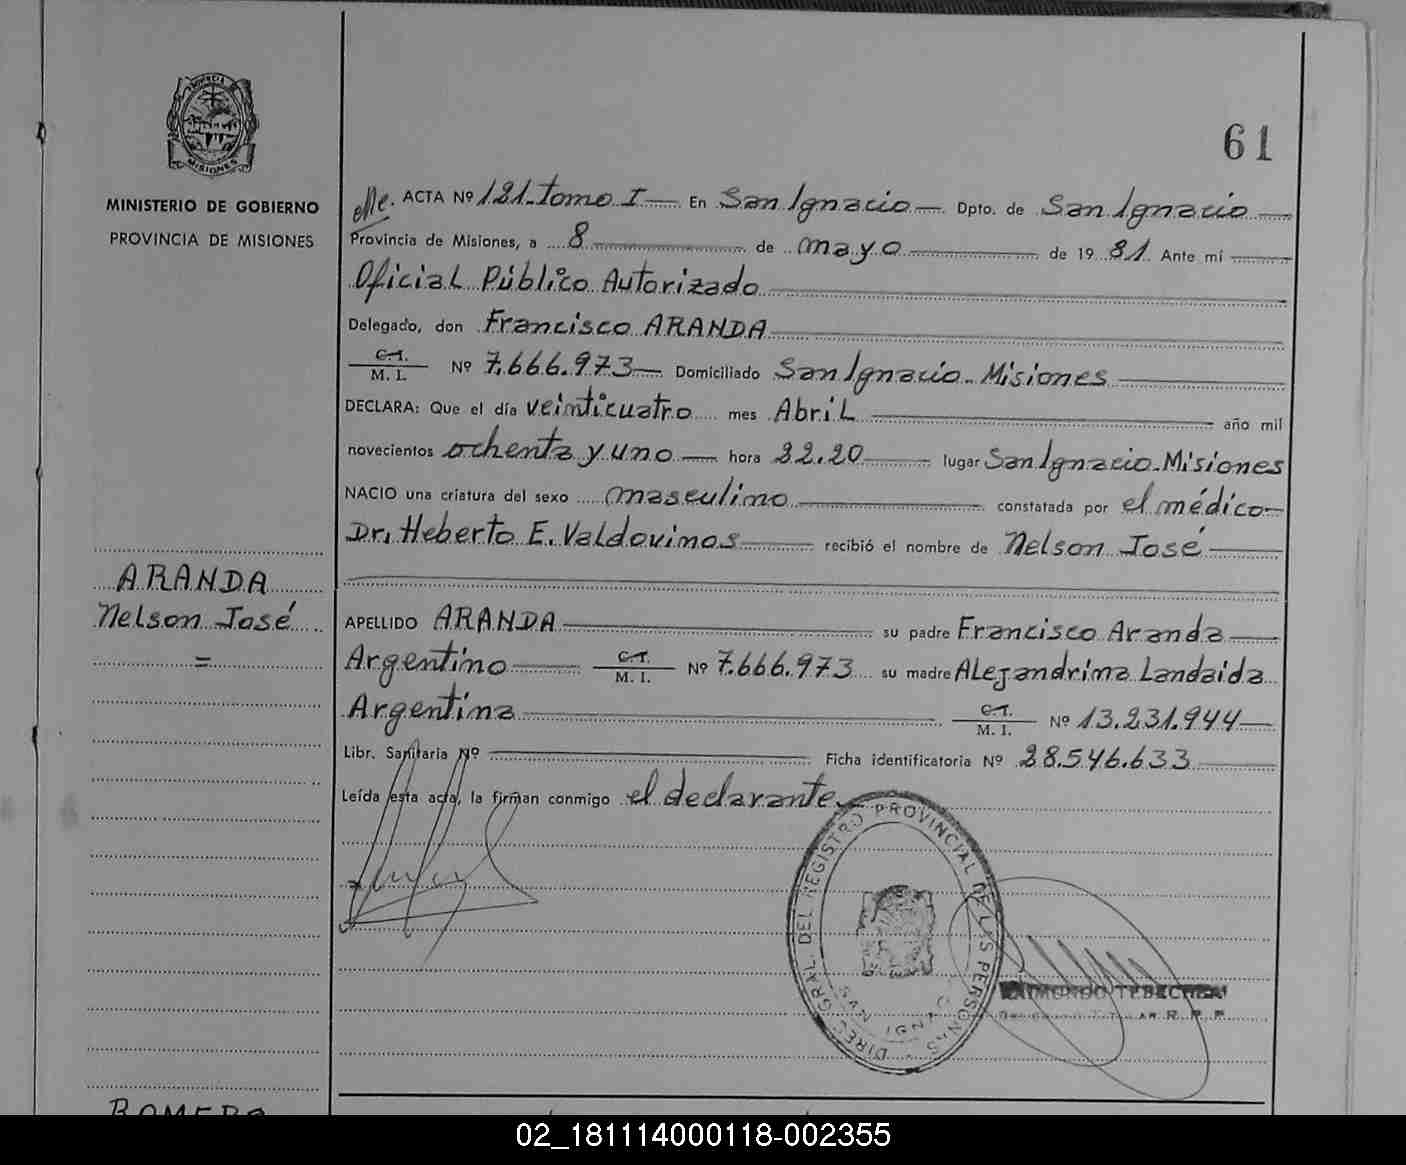 PROVINCIA DE
MISIONES
MINISTERIO DE GOBIERNO
PROVINCIA DE MISIONES
61
ACTA Nº 121 - Tomo I — En San Ignacio — Dpto. de San Ignacio
Provincia de Misiones, a 8 de mayo de 1981 Ante mí
Oficial Público Autorizado
Delegado, don Francisco ARANDA
C.I.
M. I. Nº 7.666.973 — Domiciliado San Ignacio - Misiones
DECLARA: Que el día veinticuatro mes Abril año mil
novecientos ochenta y uno — hora 22.20 lugar San Ignacio - Misiones
NACIO una criatura del sexo masculino constatada por el médico —
Dr. Heberto E. Valdovinos recibió el nombre de Nelson José
ARANDA
Nelson José
=
APELLIDO ARANDA su padre Francisco Aranda
Argentino C.I. M. I. Nº 7.666.973 su madre Alejandrina Landaida
Argentina C.I. M. I. Nº 13.231.944
Libr. Sanitaria Nº Ficha identificatoria Nº 28.546.633
Leída esta acta, la firman conmigo el declarante
DIREC. GRAL. DEL REGISTRO PROVINCIAL DE LAS PERSONAS
SAN IGNACIO
RAIMUNDO TEBECHERI
R. P. P.
ROMERO
02_181114000118-002355